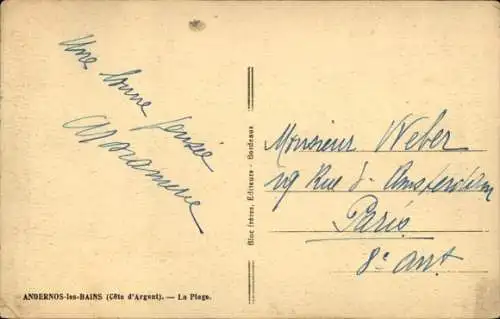 Une bonne pensée
Monsieur Weber
19 Rue d'Amsterdam
Paris
8e arrt
Bloc frères, Editeurs - Bordeaux
ANDERNOS-les-BAINS (Côte d'Argent). — La Plage.